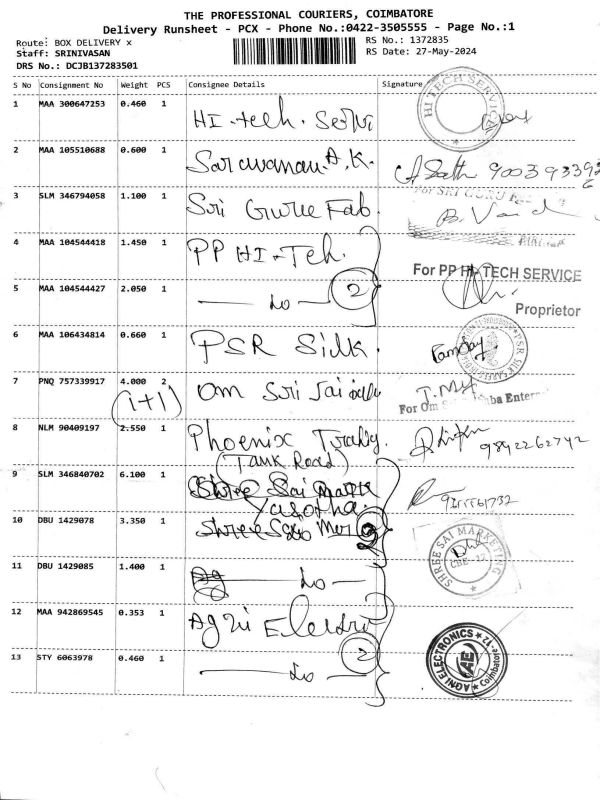 THE PROFESSIONAL COURIERS, COIMBATORE
Delivery Runsheet - PCX - Phone No.:0422-3505555 - Page No.:1
Route: BOX DELIVERY x
RS No.: 1372835
Staff: SRINIVASAN
RS Date: 27-May-2024
DRS No.: DCJB137283501
S No Consignment No Weight PCS Consignee Details Signature
1 MAA 300647253 0.460 1 HI-tech. HI TECH SERVICE
2 MAA 105510688 0.600 1 Saravanan A.K.
3 SLM 346794058 1.100 1 Sri Guru Fab. For SRI GURU
4 MAA 104544418 1.450 1 PP HI-Teh.
For PP HI-TECH SERVICE
5 MAA 104544427 2.050 1 — do — 2
Proprietor
6 MAA 106434814 0.660 1 PSR Silk.
7 PNQ 757339917 4.000 2 Om Sri Sai
(1+1) For Om
8 NLM 90409197 2.550 1 Phoenix 9842262742
(Tank Road)
9 SLM 346840702 6.100 1 Shree Sai Mark
Yasotha.
10 DBU 1429078 3.350 1 Shree Sai
SHREE SAI MARKETING CBE-12
11 DBU 1429085 1.400 1 — do —
12 MAA 942869545 0.353 1 Agni
AGNI ELECTRONICS Coimbatore-12
13 STY 6063978 0.460 1 — do — 2